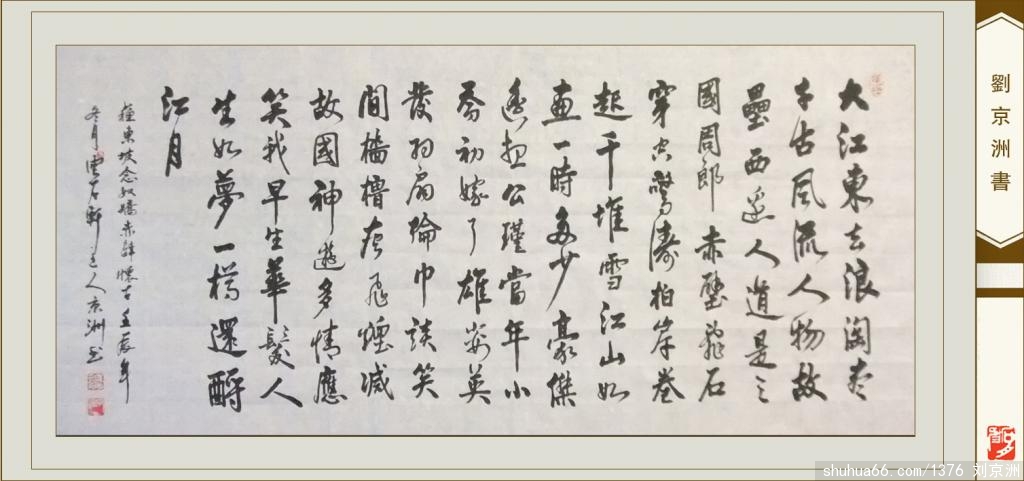 大江東去浪淘盡
千古風流人物故
壘西邊人道是三
國周郎赤壁亂石
穿空驚濤拍岸卷
起千堆雪江山如
畫一時多少豪傑
遙想公瑾當年小
喬初嫁了雄姿英
發羽扇綸巾談笑
間檣櫓灰飛煙滅
故國神遊多情應
笑我早生華髮人
生如夢一樽還酹
江月
蘇東坡念奴嬌赤壁懷古壬辰年
冬月雲石軒主人京洲書
劉京洲書
shuhua66.com/1376 刘京洲